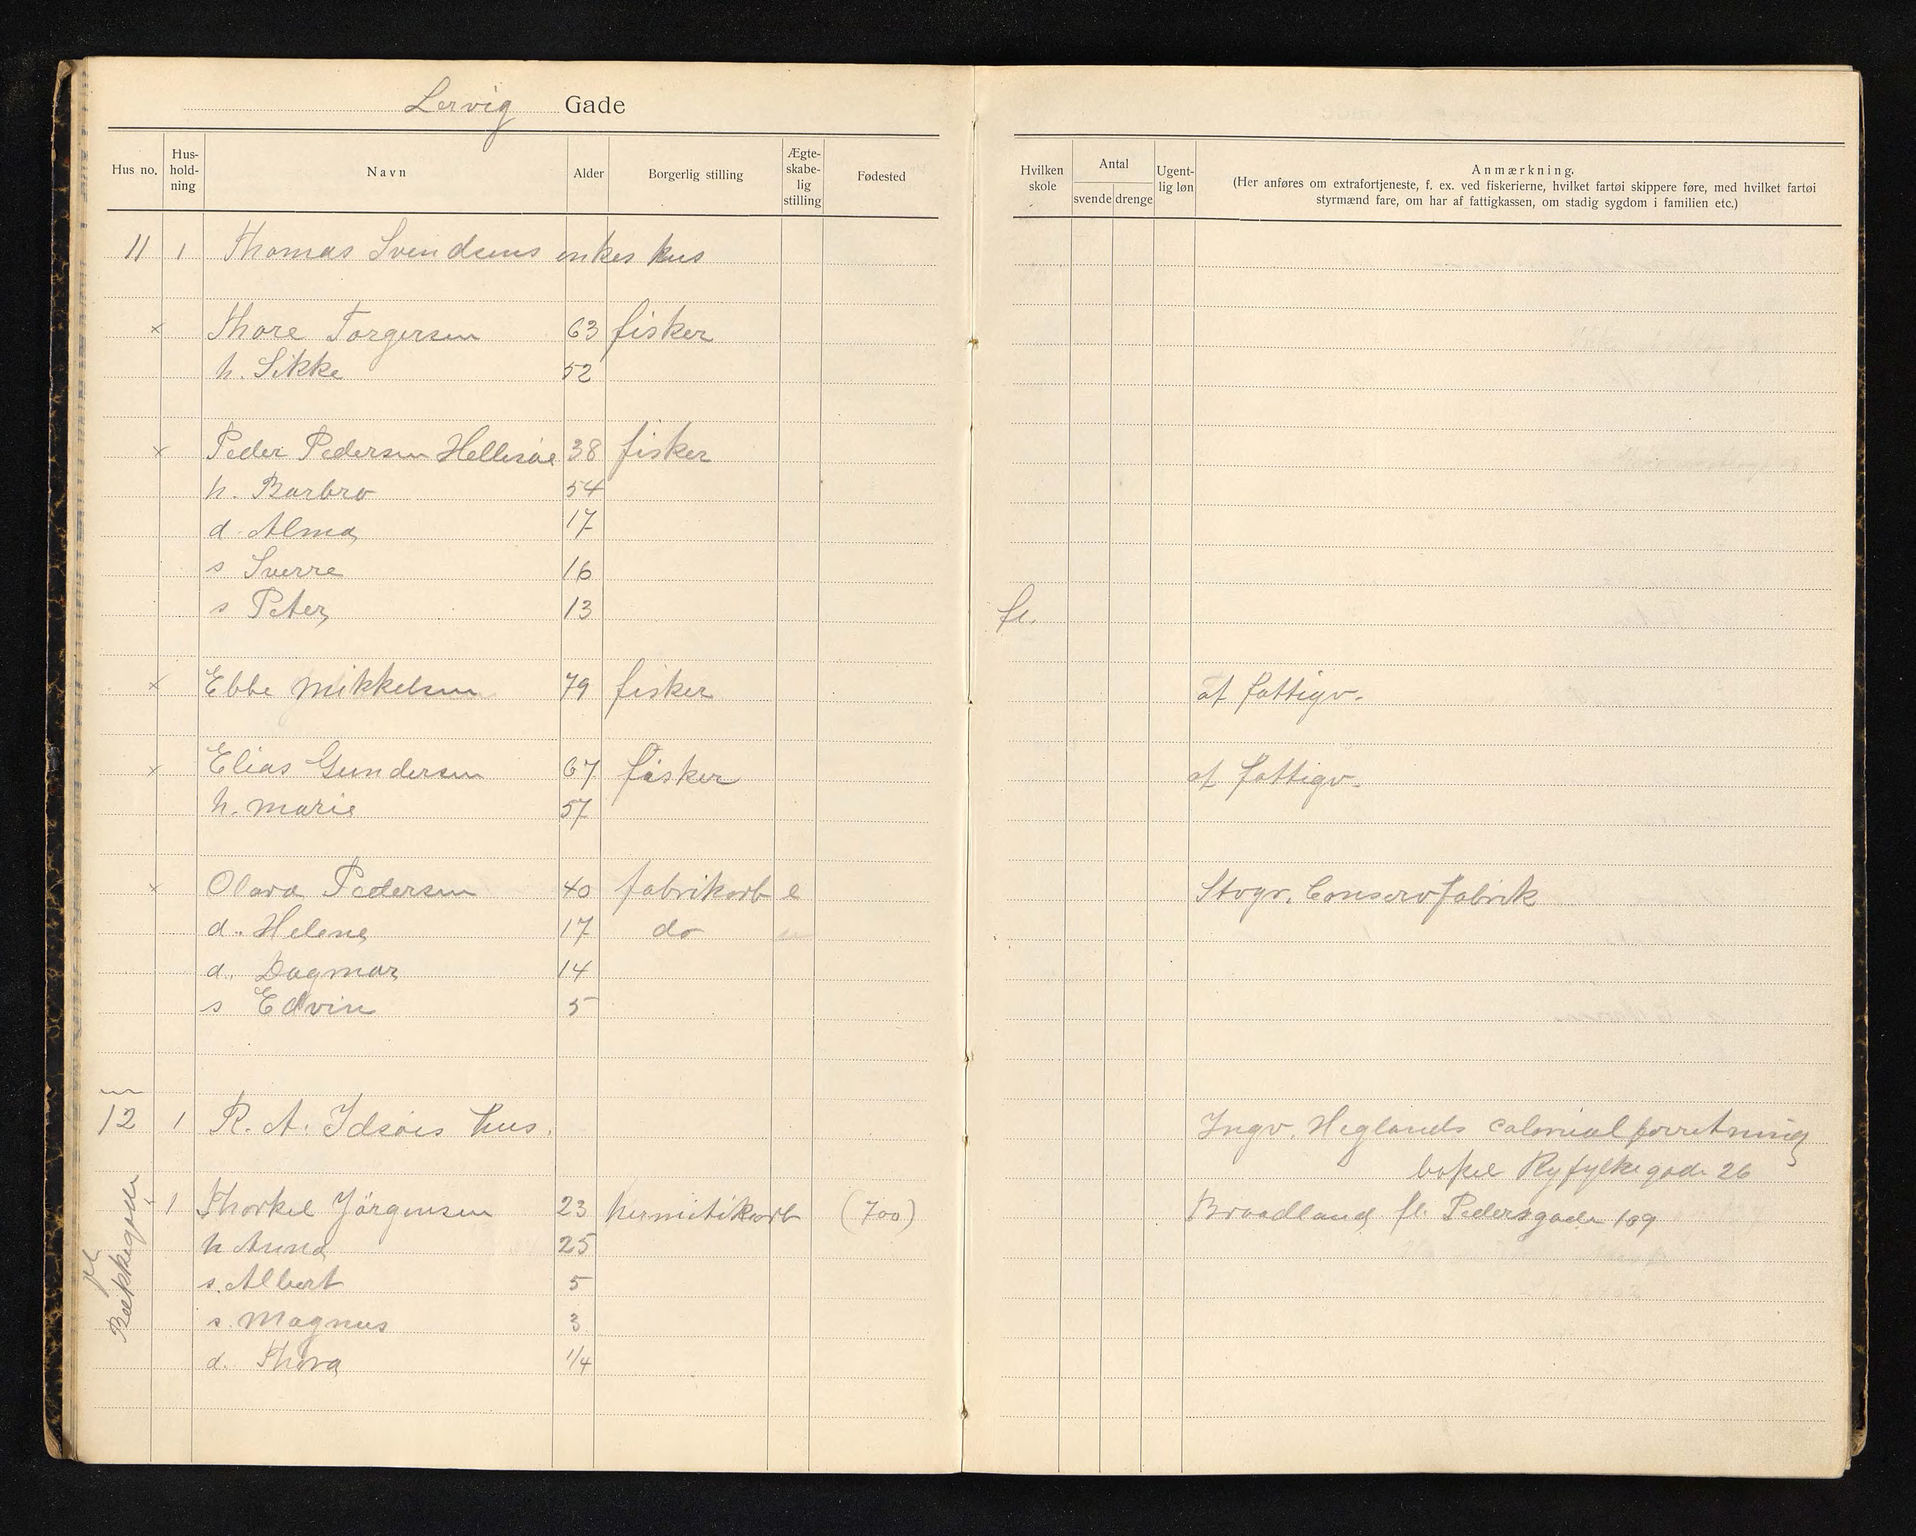 Lervig Gade
Hus no. Hus-hold-ning Navn Alder Borgerlig stilling Ægte-skabe-lig stilling Fødested Hvilken skole Antal svende drenge Ugent-lig løn Anmærkning.
(Her anføres om extrafortjeneste, f. ex. ved fiskerierne, hvilket fartøi skippere føre, med hvilket fartøi
styrmænd fare, om har af fattigkassen, om stadig sygdom i familien etc.)
11 1 Thomas Svendsens enkes hus
x Thore Torgersen 63 fisker
h. Sikke 52
x Peder Pedersen Hellesøe 38 fisker
h. Barbro 54
d. Alma 17
s Sverre 16
s Peter 13 fl.
x Ebbe Mikkelsen 79 fisker af fattigv.
x Elias Gundersen 67 fisker af fattigv.
h. Marie 57
x Olava Pedersen 40 fabrikarb e Stvgr. Conservfabrik
d. Helene 17 do
d. Dagmar 14
s Edvin 5
12 1 R. A. Idsøis hus. Ingv. Heglands colonialforretning
bopel Ryfylkegade 26
1 Thorkel Jørgensen 23 hermetikarb (700) Braadland fl. Pedersgade 109
h Anna 25
s. Albert 5
s. Magnus 3
d. Thora 1/4
Bækkegade